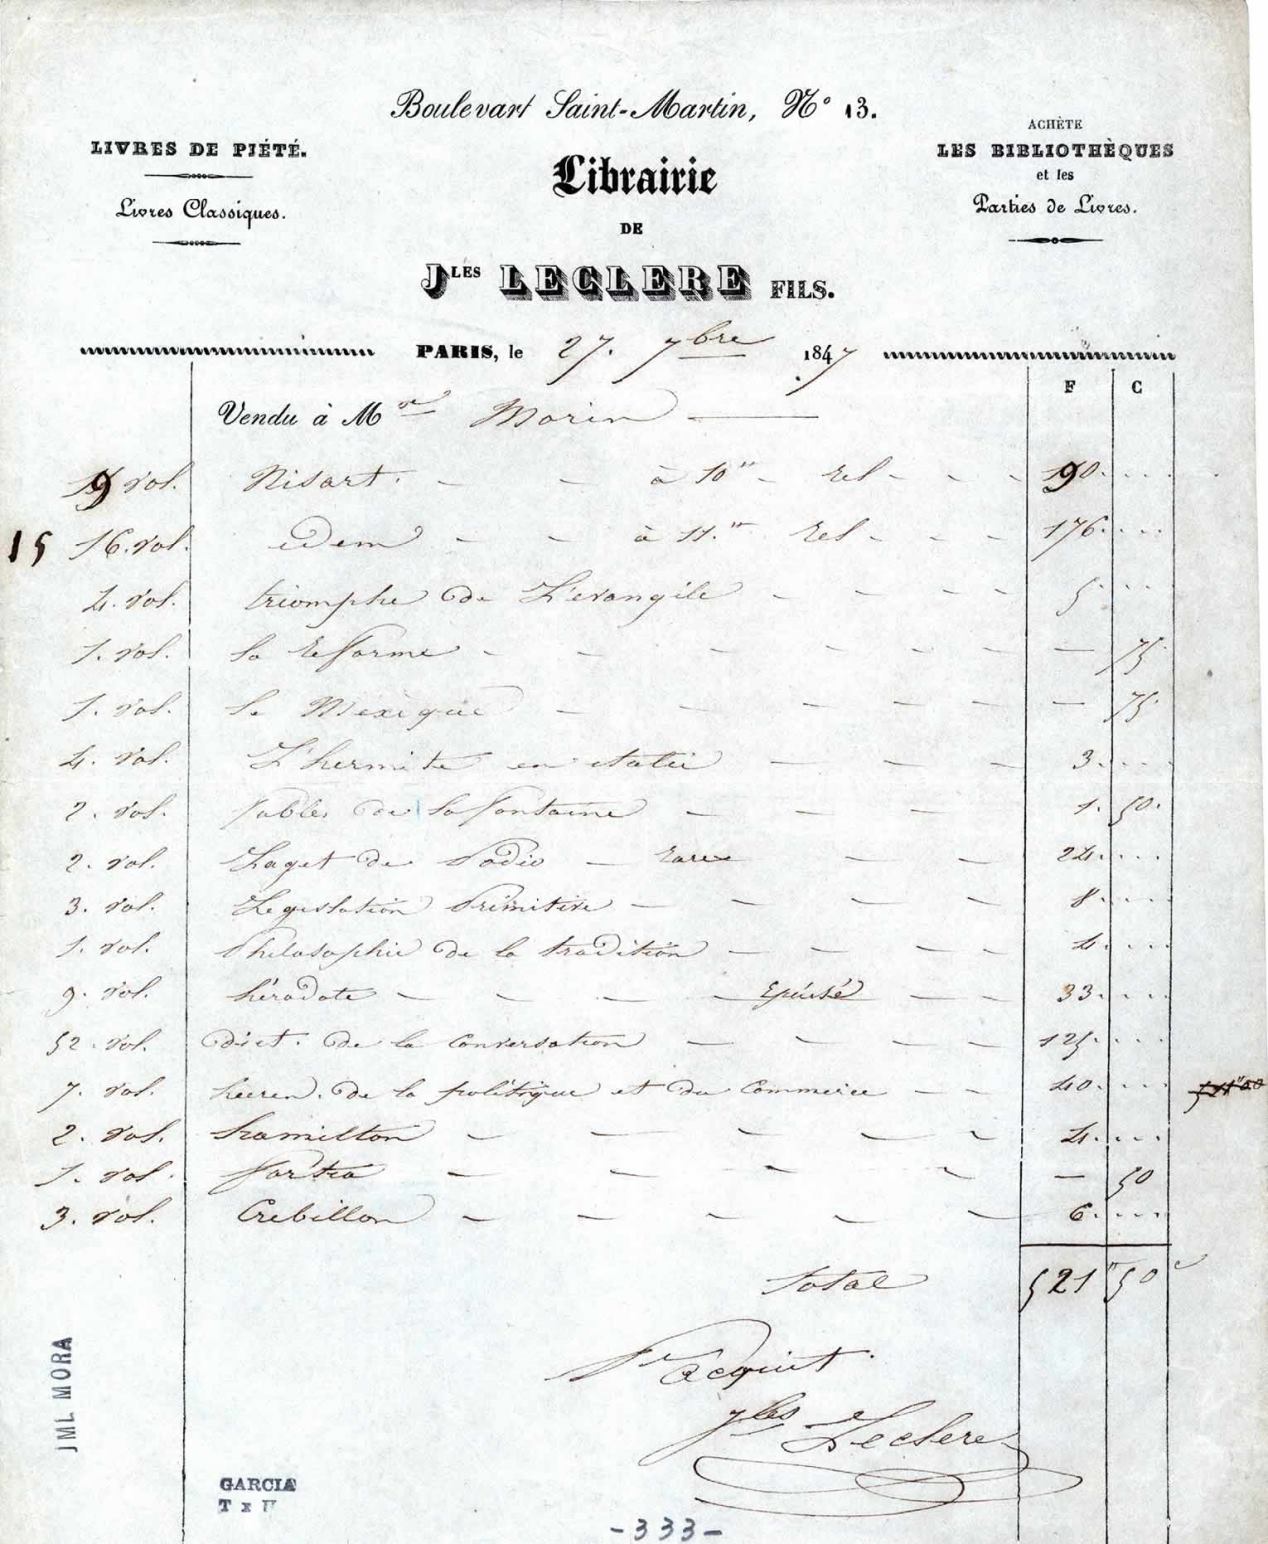 Boulevart Saint-Martin, Nº 13.
LIVRES DE PIÉTÉ.
Livres Classiques.
ACHÈTE
LES BIBLIOTHÈQUES
et les
Parties de Livres.
Librairie
DE
Jles LECLERE FILS.
PARIS, le 27. 7bre 1847
F C
Vendu à Mr Morin
9 vol. Nisart. à 10" rel 90
15 16. vol. idem à 11." rel 176
4. vol. triomphe de L'evangile 5
1. vol. la reforme 75
1. vol. le Mexique 75
4. vol. L'hermite en italie 3
2. vol. fables de lafontaine 1. 50
2. vol. de rare 24
3. vol. Legislation Primitive 8
1. vol. Philosophie de la tradition 4
9. vol. hérodote Epuisé 33
52. vol. dict. de la Conversation 125
7. vol. heeren. de la politique et du Commerce 40
2. vol. hamilton 4
1. vol. 50
3. vol. Crebillon 6
total 521 50c
Pr acquit
Jles Leclere
JML MORA
GARCIA
-333-